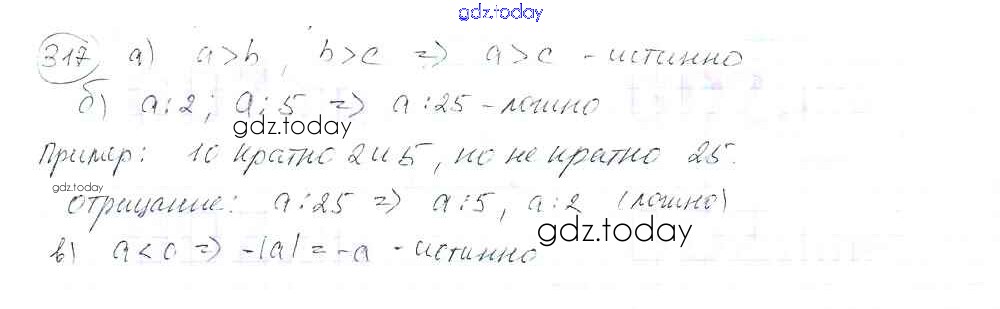 gdz.today
317 а) a>b, b>c => a>c - истинно
б) a⋮2; a⋮5 => a⋮25 - ложно
gdz.today
Пример: 10 кратно 2 и 5, но не кратно 25.
gdz.today
Отрицание: a⋮25 => a⋮5, a⋮2 (ложно)
gdz.today
в) a<0 => -|a| = -a - истинно